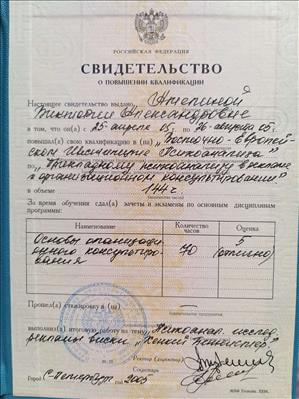 РОССИЙСКАЯ ФЕДЕРАЦИЯ
СВИДЕТЕЛЬСТВО
О ПОВЫШЕНИИ КВАЛИФИКАЦИИ
Настоящее свидетельство выдано
Александровне
в том, что он(а) с 25 апреля 05 г. по 26 августа 05 г.
повышал(а) свою квалификацию в (на) Восточно-Европей-
ском Институте Психоанализа
по Прикладному психоанализу в рекламе
и организационном консультировании"
в объеме 144 ч.
За время обучения сдал(а) зачеты и экзамены по основным дисциплинам
программы:
Наименование Количество часов Оценка
Основы организаци- 70 5
онного консультиро- (отлично)
вания
Прошел(а) стажировку в (на)
выполнил(а) итоговую работу на тему Психоанал. исслед.
рекламы виски
Ректор (директор)
Секретарь
Город С-Петербург год 2005